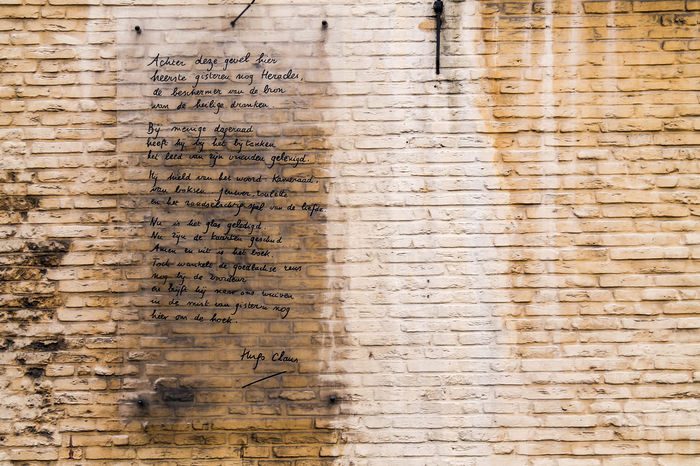 Achter deze gevel hier
heerste gisteren nog Heracles,
de beschermer van de bron
van de heilige dranken.
Bij menige dageraad
heeft hij bij het bijtanken
het leed van zijn vrienden gelenigd.
Hij hield van het woord Kameraad,
van boksen, jenever, toulotte
en het raadselachtig spel van de liefde.
Nu is het glas geledigd
Nu zijn de kaarten geschud
Amen en uit is het boek.
Toch wankelt de goedlachse reus
nog bij de voordeur
en blijft hij naar ons wuiven
in de mist van gisteren nog
hier om de hoek.
Hugo Claus